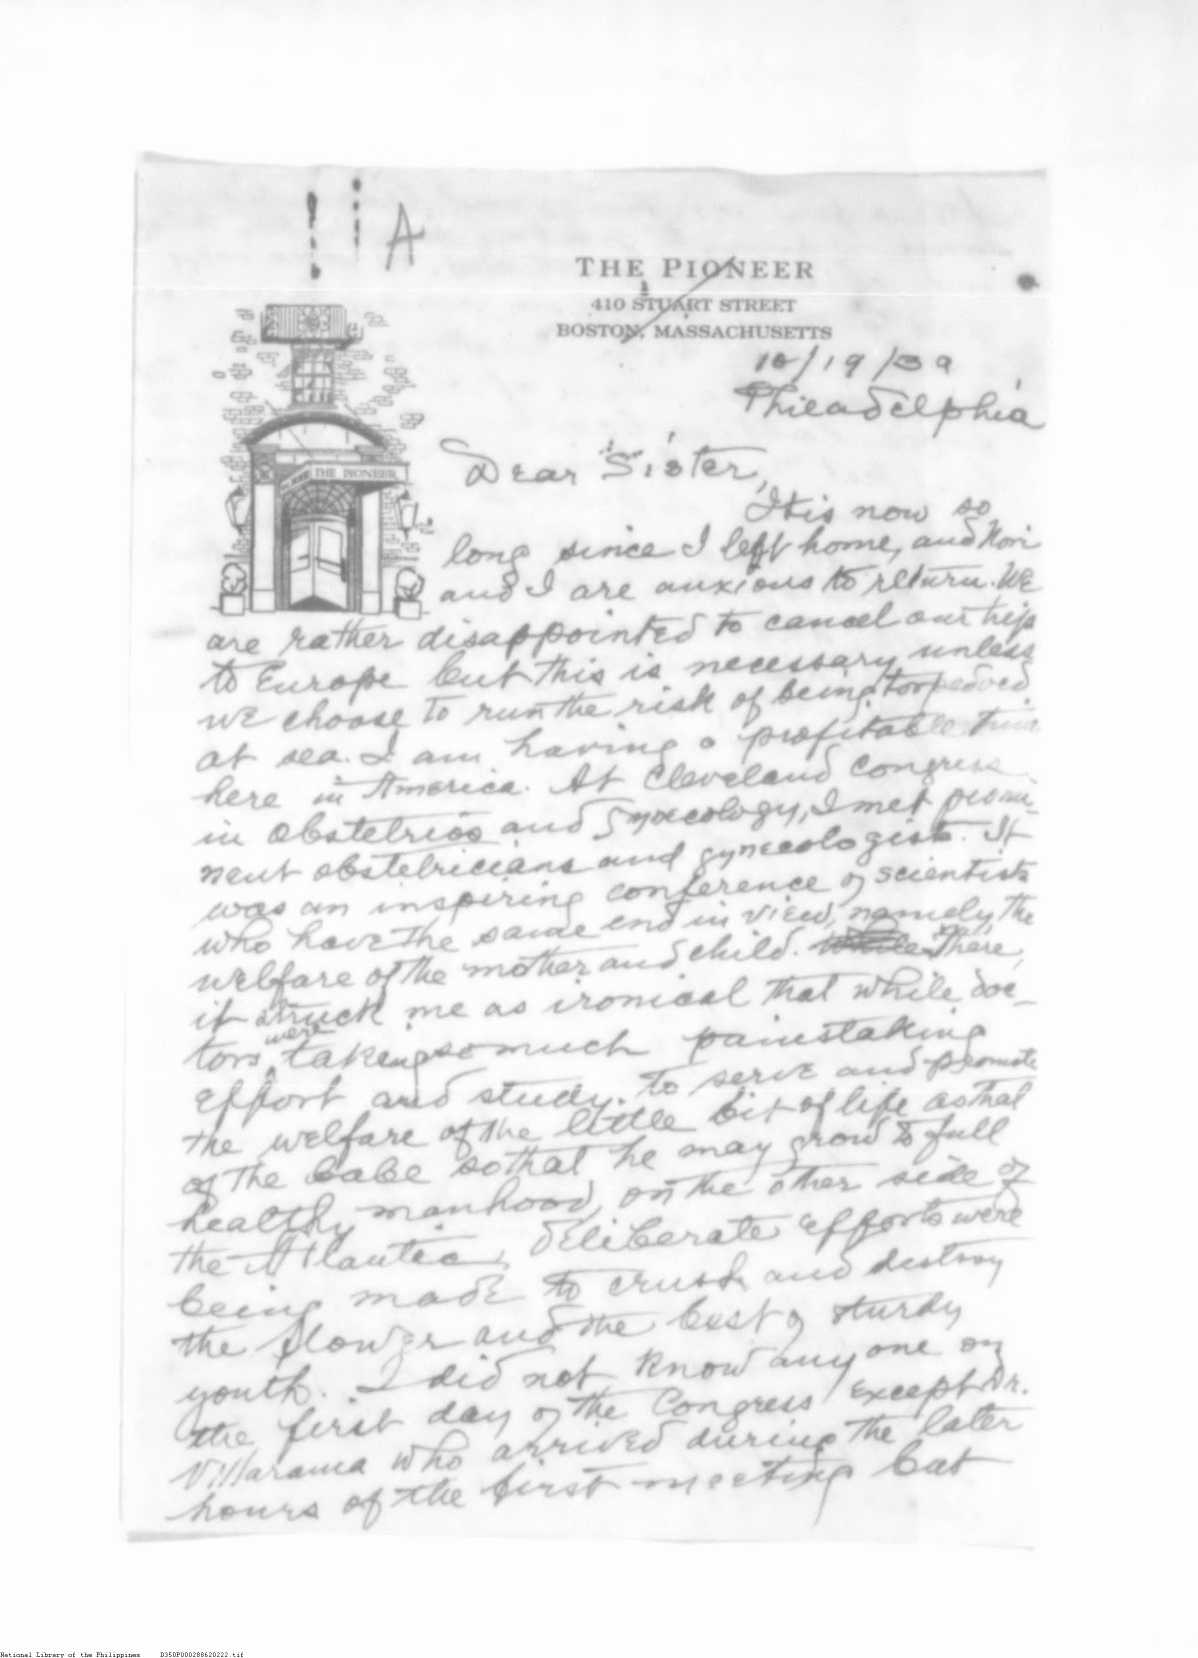 A
THE PIONEER
410 STUART STREET
BOSTON, MASSACHUSETTS
THE PIONEER
10/19/39
Philadelphia
Dear Sister,
It is now so
long since I left home, and Nori
and I are anxious to return. We
are rather disappointed to cancel our trip
to Europe but this is necessary unless
we choose to run the risk of being torpedoed
at sea. I am having a profitable time
here in America. At Cleveland Congress
in Obstetrics and Gynecology, I met promi-
nent obstetricians and gynecologists. It
was an inspiring conference of scientists
who have the same end in view, namely, the
welfare of the mother and child. There,
it struck me as ironical that while doc-
tors were taking so much painstaking
effort and study to serve and promote
the welfare of the little bit of life as that
of the babe so that he may grow to full
healthy manhood, on the other side of
the Atlantic, deliberate efforts were
being made to crush and destroy
the flower and the best of sturdy
youth. I did not know any one on
the first day of the Congress except Dr.
Villarama who arrived during the later
hours of the first meeting but
National Library of the Philippines D350P000288620222.tif